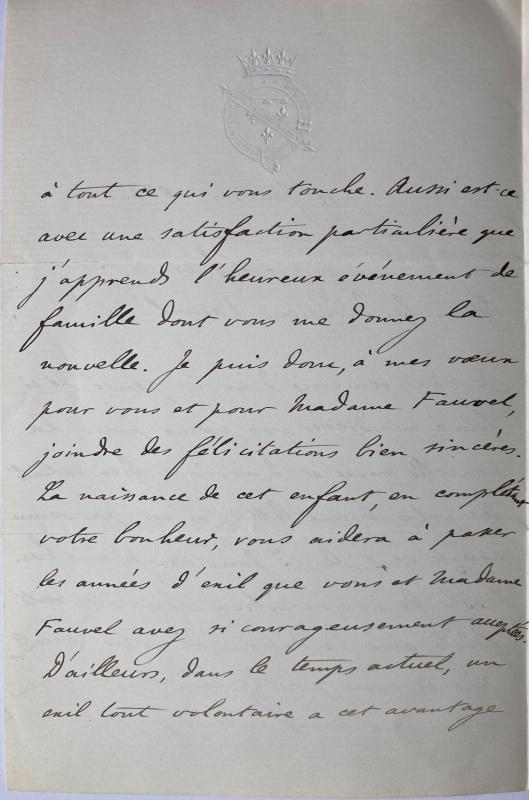 à tout ce qui vous touche. Aussi est-ce
avec une satisfaction particulière que
j'apprends l'heureux événement de
famille dont vous me donnez la
nouvelle. Je puis donc, à mes vœux
pour vous et pour Madame Fauvel,
joindre des félicitations bien sincères.
La naissance de cet enfant, en complétant
votre bonheur, vous aidera à passer
les années d'exil que vous et Madame
Fauvel avez si courageusement acceptées.
D'ailleurs, dans le temps actuel, un
exil tout volontaire a cet avantage